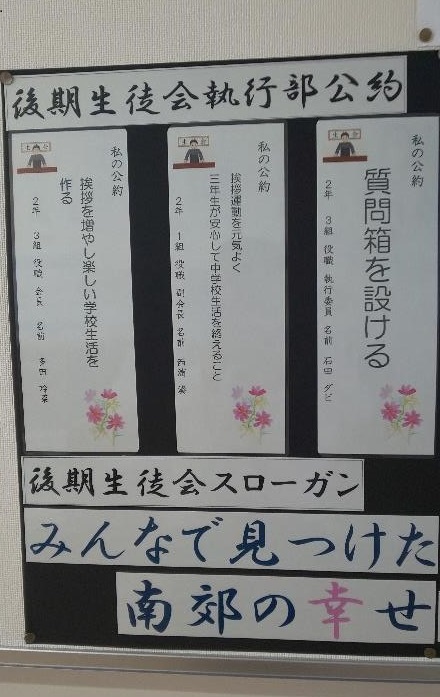 後期生徒会執行部公約
私の公約
質問箱を設ける
2年 3組 役職 執行委員 名前 石田
私の公約
挨拶運動を元気よく
三年生が安心して中学校生活を終えること
2年 1組 役職 副会長 名前
私の公約
挨拶を増やし楽しい学校生活を
作る
2年 3組 役職 会長 名前 多田
後期生徒会スローガン
みんなで見つけた
南郊の幸せ